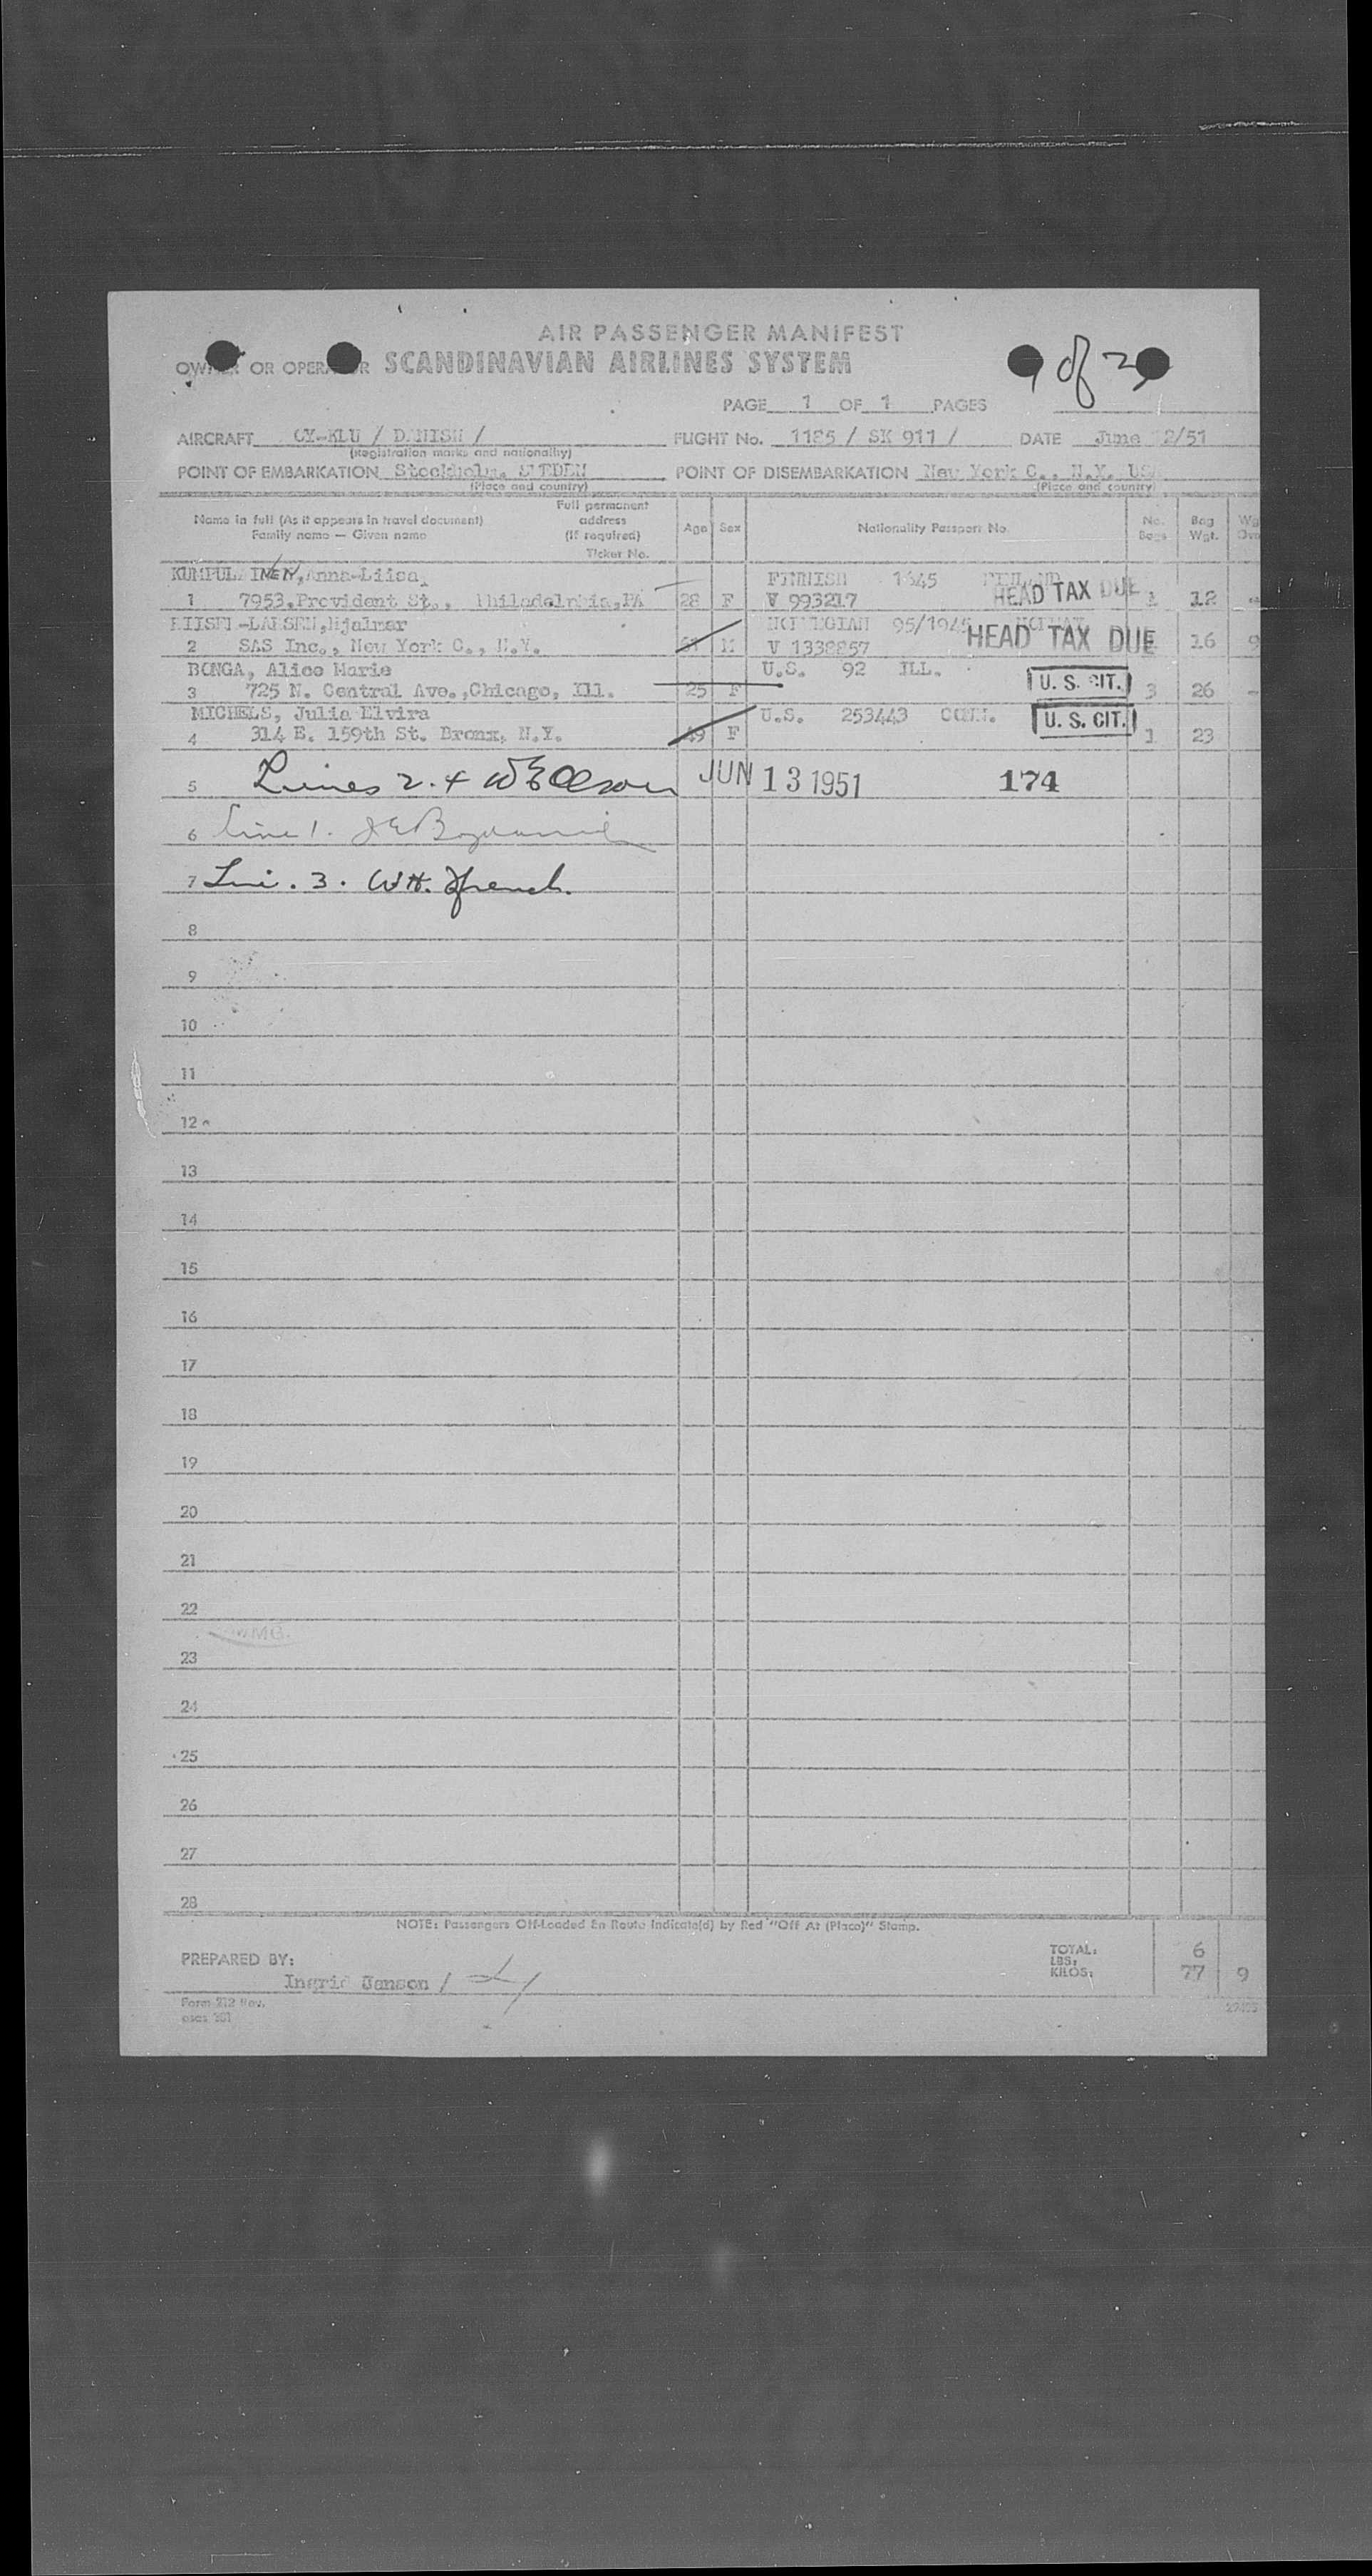 AIR PASSENGER MANIFEST
OWNER OR OPERATOR SCANDINAVIAN AIRLINES SYSTEM
of 2
PAGE 1 OF 1 PAGES
AIRCRAFT OY-KLU / DANISH / FLIGHT No. 1185 / SK 911 / DATE June 12/51
(Registration marks and nationality)
POINT OF EMBARKATION Stockholm, SWEDEN POINT OF DISEMBARKATION New York C., N.Y. US
(Place and country) (Place and country)
Name in full (As it appears in travel document) Full permanent address (If required) Age Sex Nationality Passport No. No. Bags Bag Wgt.
Family name — Given name Ticket No.
KUMPULAINEN, Anna-Liisa, FINNISH 1645 FINLAND
1 7953, Provident St., Philadelphia, PA 28 F V 993217 HEAD TAX DUE 1 12 -
RIISER-LARSEN, Hjalmar NORWEGIAN 95/1945 NORWAY
2 SAS Inc., New York C., N.Y. 61 M V 1338857 HEAD TAX DUE 16 9
BONGA, Alice Marie U.S. 92 ILL.
3 725 N. Central Ave., Chicago, Ill. 25 F U. S. CIT. 3 26 -
MICHELS, Julia Elvira U.S. 253443 CONN. U. S. CIT.
4 314 E. 159th St. Bronx, N.Y. 49 F 1 23
5 Lines 2. 4 JUN 13 1951 174
6 Line 1.
7 Line. 3. WH. French.
8
9
10
11
12
13
14
15
16
17
18
19
20
21
22
23
24
25
26
27
28
NOTE: Passengers Off-Loaded En Route Indicate(d) by Red "Off At (Place)" Stamp.
PREPARED BY: TOTAL: 6
LBS:
Ingrid Janson / KILOS: 77 9
Form 212 Rev.